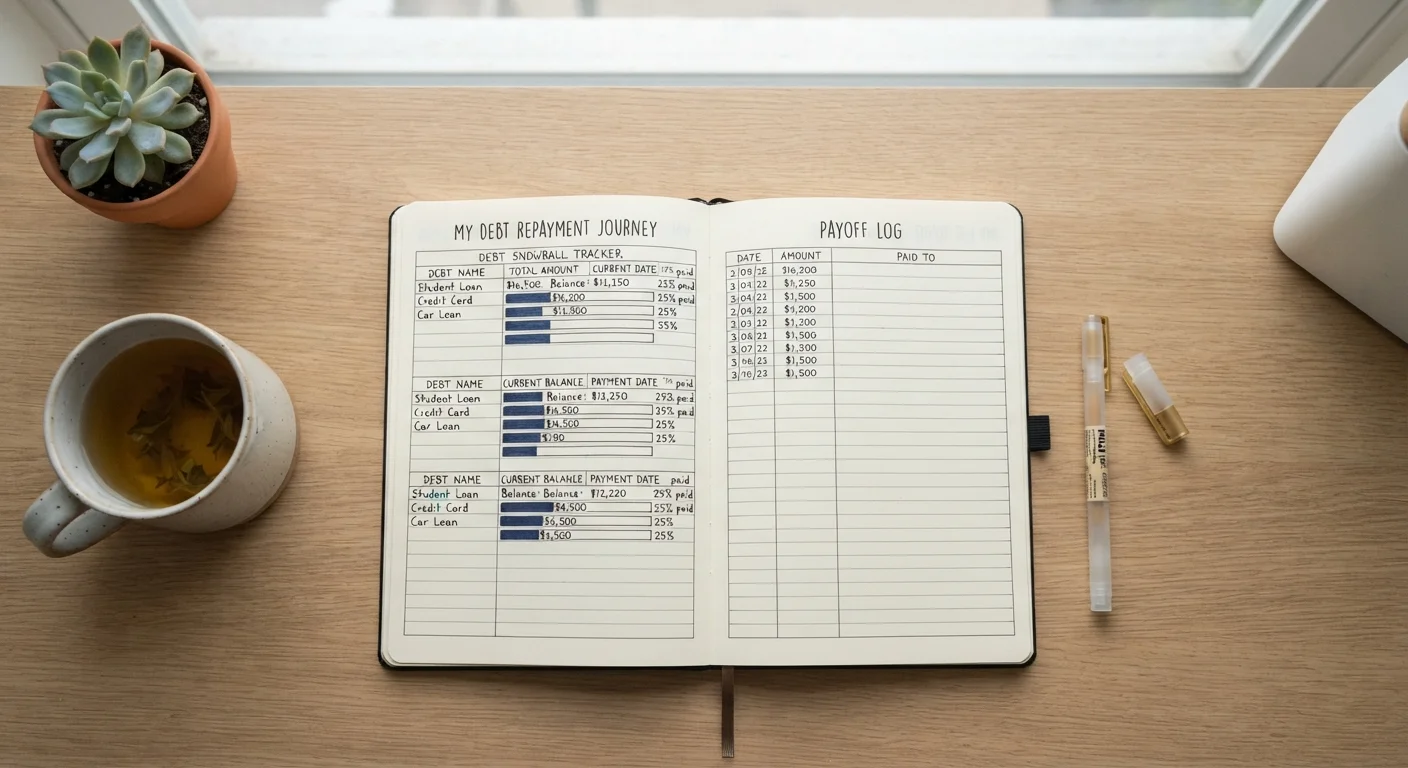 MY DEBT REPAYMENT JOURNEY
DEBT SNOWBALL TRACKER.
DEBT NAME TOTAL AMOUNT CURRENT DATE paid
Student Loan Balance: $11,150 23% paid
Credit Cerd $16,200 25% paid
Car Loan $11,800 25%
35%
DEBT NAME CURSENT BALANCE PAYMENT DATE paid
Student Loan Reiance: $13,250 293 paid
Credit Card $14,500 35% paid
Car Loan $14,500 25%
25%
DEST NAME CURSENT BALANLE PAYMENT DATE paid
Student Loan Belance: Belance: $12,220 25% paid
Credit Cord $4,500 55% paid
Car Lean $6,500 25%
25%
PAYOFF LOG
DATE AMOUNT PAID TO
2 09 22 $16,200
3 04 22
3 04 22 $3,500
2 04 22
3 03 12 $1,200
3 08 21 $1,500
3 07 22 $1,300
3 23 $1,500
3 10 23 $1,500